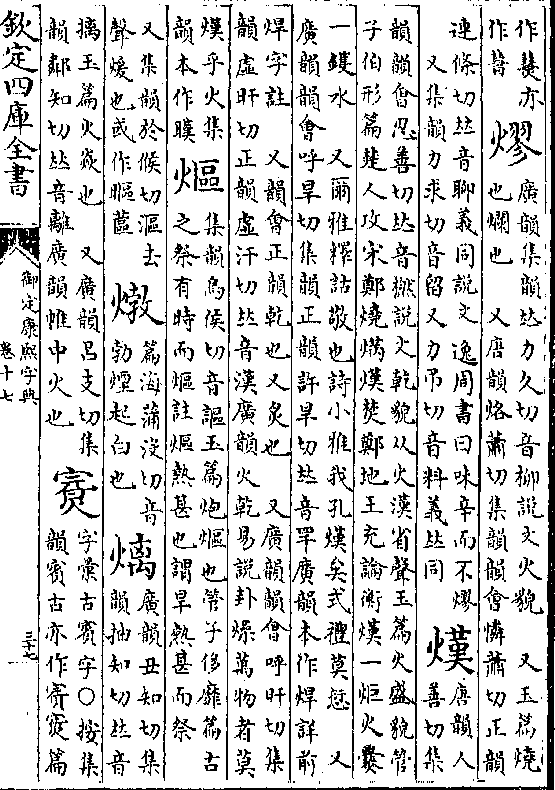 作亦
作
熮
廣韻集韻𠀤力久切音柳說文火貌　又玉篇燒
也爛也　又唐韻烙蕭切集韻韻會憐蕭切正韻
連條切𠀤音聊義同說文　逸周書曰味辛而不熮
又集韻力求切音留又力吊切音料義𠀤同
熯
唐韻人
善切集
韻韻會忍善切𠀤音橪說文乾貌从火漢省聲玉篇火盛貌管
子伯形篇楚人攻宋鄭燒焫熯焚鄭地王充論衡熯一炬火爨
一鑊水　又爾雅釋詁敬也詩小雅我孔熯矣式禮莫愆　又
廣韻韻會呼旱切集韻正韻許旱切𠀤音罕廣韻本作焊詳前
焊字註　又韻會正韻乾也又炙也　又廣韻韻會呼旰切集
韻虛旰切正韻虛汗切𠀤音漢廣韻火乾易說卦燥萬物者莫
熯乎火集
韻本作暵
熰
集韻烏侯切音謳玉篇炮熰也管子侈靡篇古
之祭有時而熰註熰熱甚也謂旱熱甚而祭
又集韻於候切漚去
聲煖也或作蓲
篇海蒲沒切音
勃煙起白也
廣韻丑知切集
韻抽知切𠀤音
摛玉篇火焱也　又廣韻呂支切集
韻鄰知切𠀤音離廣韻帷中火也
字彙古賓字〇按集
韻賓古亦作篇
欽定四庫全書
御定康熙字典
卷十七
三十七